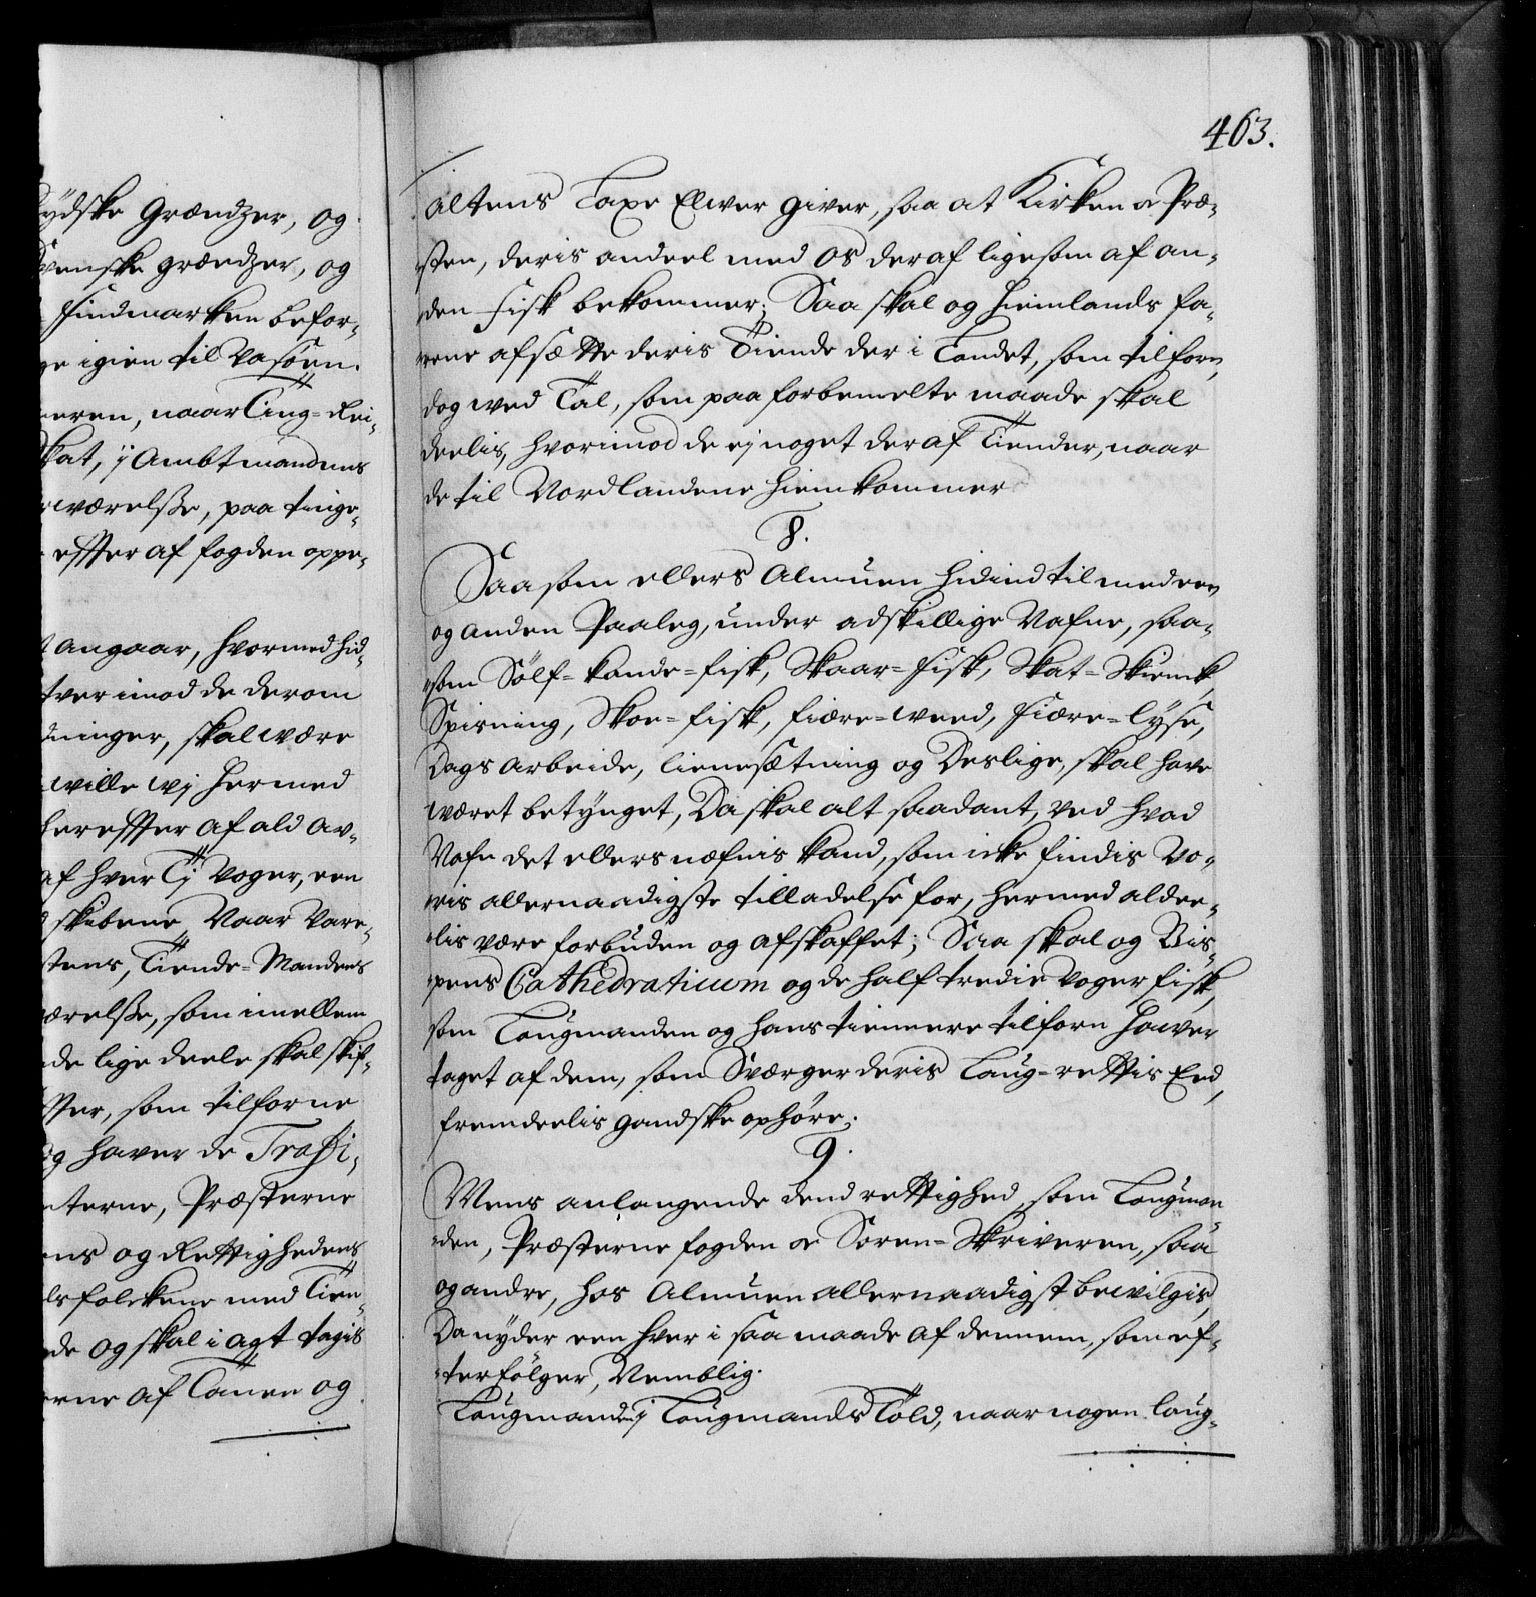 ydske Grændzer, og
Svenske grændzer, og
Findmarken befor-
ge igien til Vasøen.
eren, naar Ting-Rei-
Skat, i Ambtmandens
werelsse, paa tinge-
effter af fogden oppe-
angaar, hvormed hid-
tverimod de derom
dninger, skal være
wille wj hermed
hereffter af ald av-
af hver Tj Voger, een
skibene, Naar Vare-
stens, Tiende-Mandens
ærelsse, som imellem
de lige deele skal skif-
ffter, som tilforne
og haver de Traffi-
eterne, Præsterne
ens og Rettighedens
dsfolckene med Tien-
de og skal i agt tagis
erne af Tanen og
463.
Altens Taxe Elwer giver, saa at Kirken oc Præ-
sten, deris andeel med os deraf ligesom af an-
den Fisk bekommer; Saa skal og hiemlands fa-
rene afsætte deris Tiende der i Landet, som tilforn,
dog ved Tal, som paa forbemelte maade skal
deelis, hvorimod de ej noget deraf Tiender, naar
de til Nordlandene hiemkommer
8.
Saasom ellers Almuen hidindtil med een
og anden Paaleg, under adskillige Nafne, saa-
som Sölf-kande-fisk, Skaar-Fisk, Skat-Skienck,
Spisning, Skoe-fisk, fiære-weed, Fiære-lyse,
Dags arbeide, lienesætning og Deslige, skal have
været betynget, Da skal alt saadant, ved hvad
Nafn det ellers næfnis kand, som icke findis Vo-
ris allernaadigste tilladelse for, hermed aldee-
lis være forbuden og afskaffet; Saa skal og Bis-
pens Cathedraticum og de half tredie voger fisk,
som Laugmanden og hans tiennere tilforn hawer
taget af dem, som Sværger deris Laug-rettis Eed,
fremdeelis gandske ophöre.
9.
Mens anlangende dend rettighed, som Laugman
den, Præsterne fogden oc Soren-Skriveren, saa
og andre, hos Almuen allernaadigst bevilgis,
Da nyder een hver i saa maade af dennem, som ef-
terfölger, Nemblig.
Laugmanden i Laugmands Told, naar nogen laug-